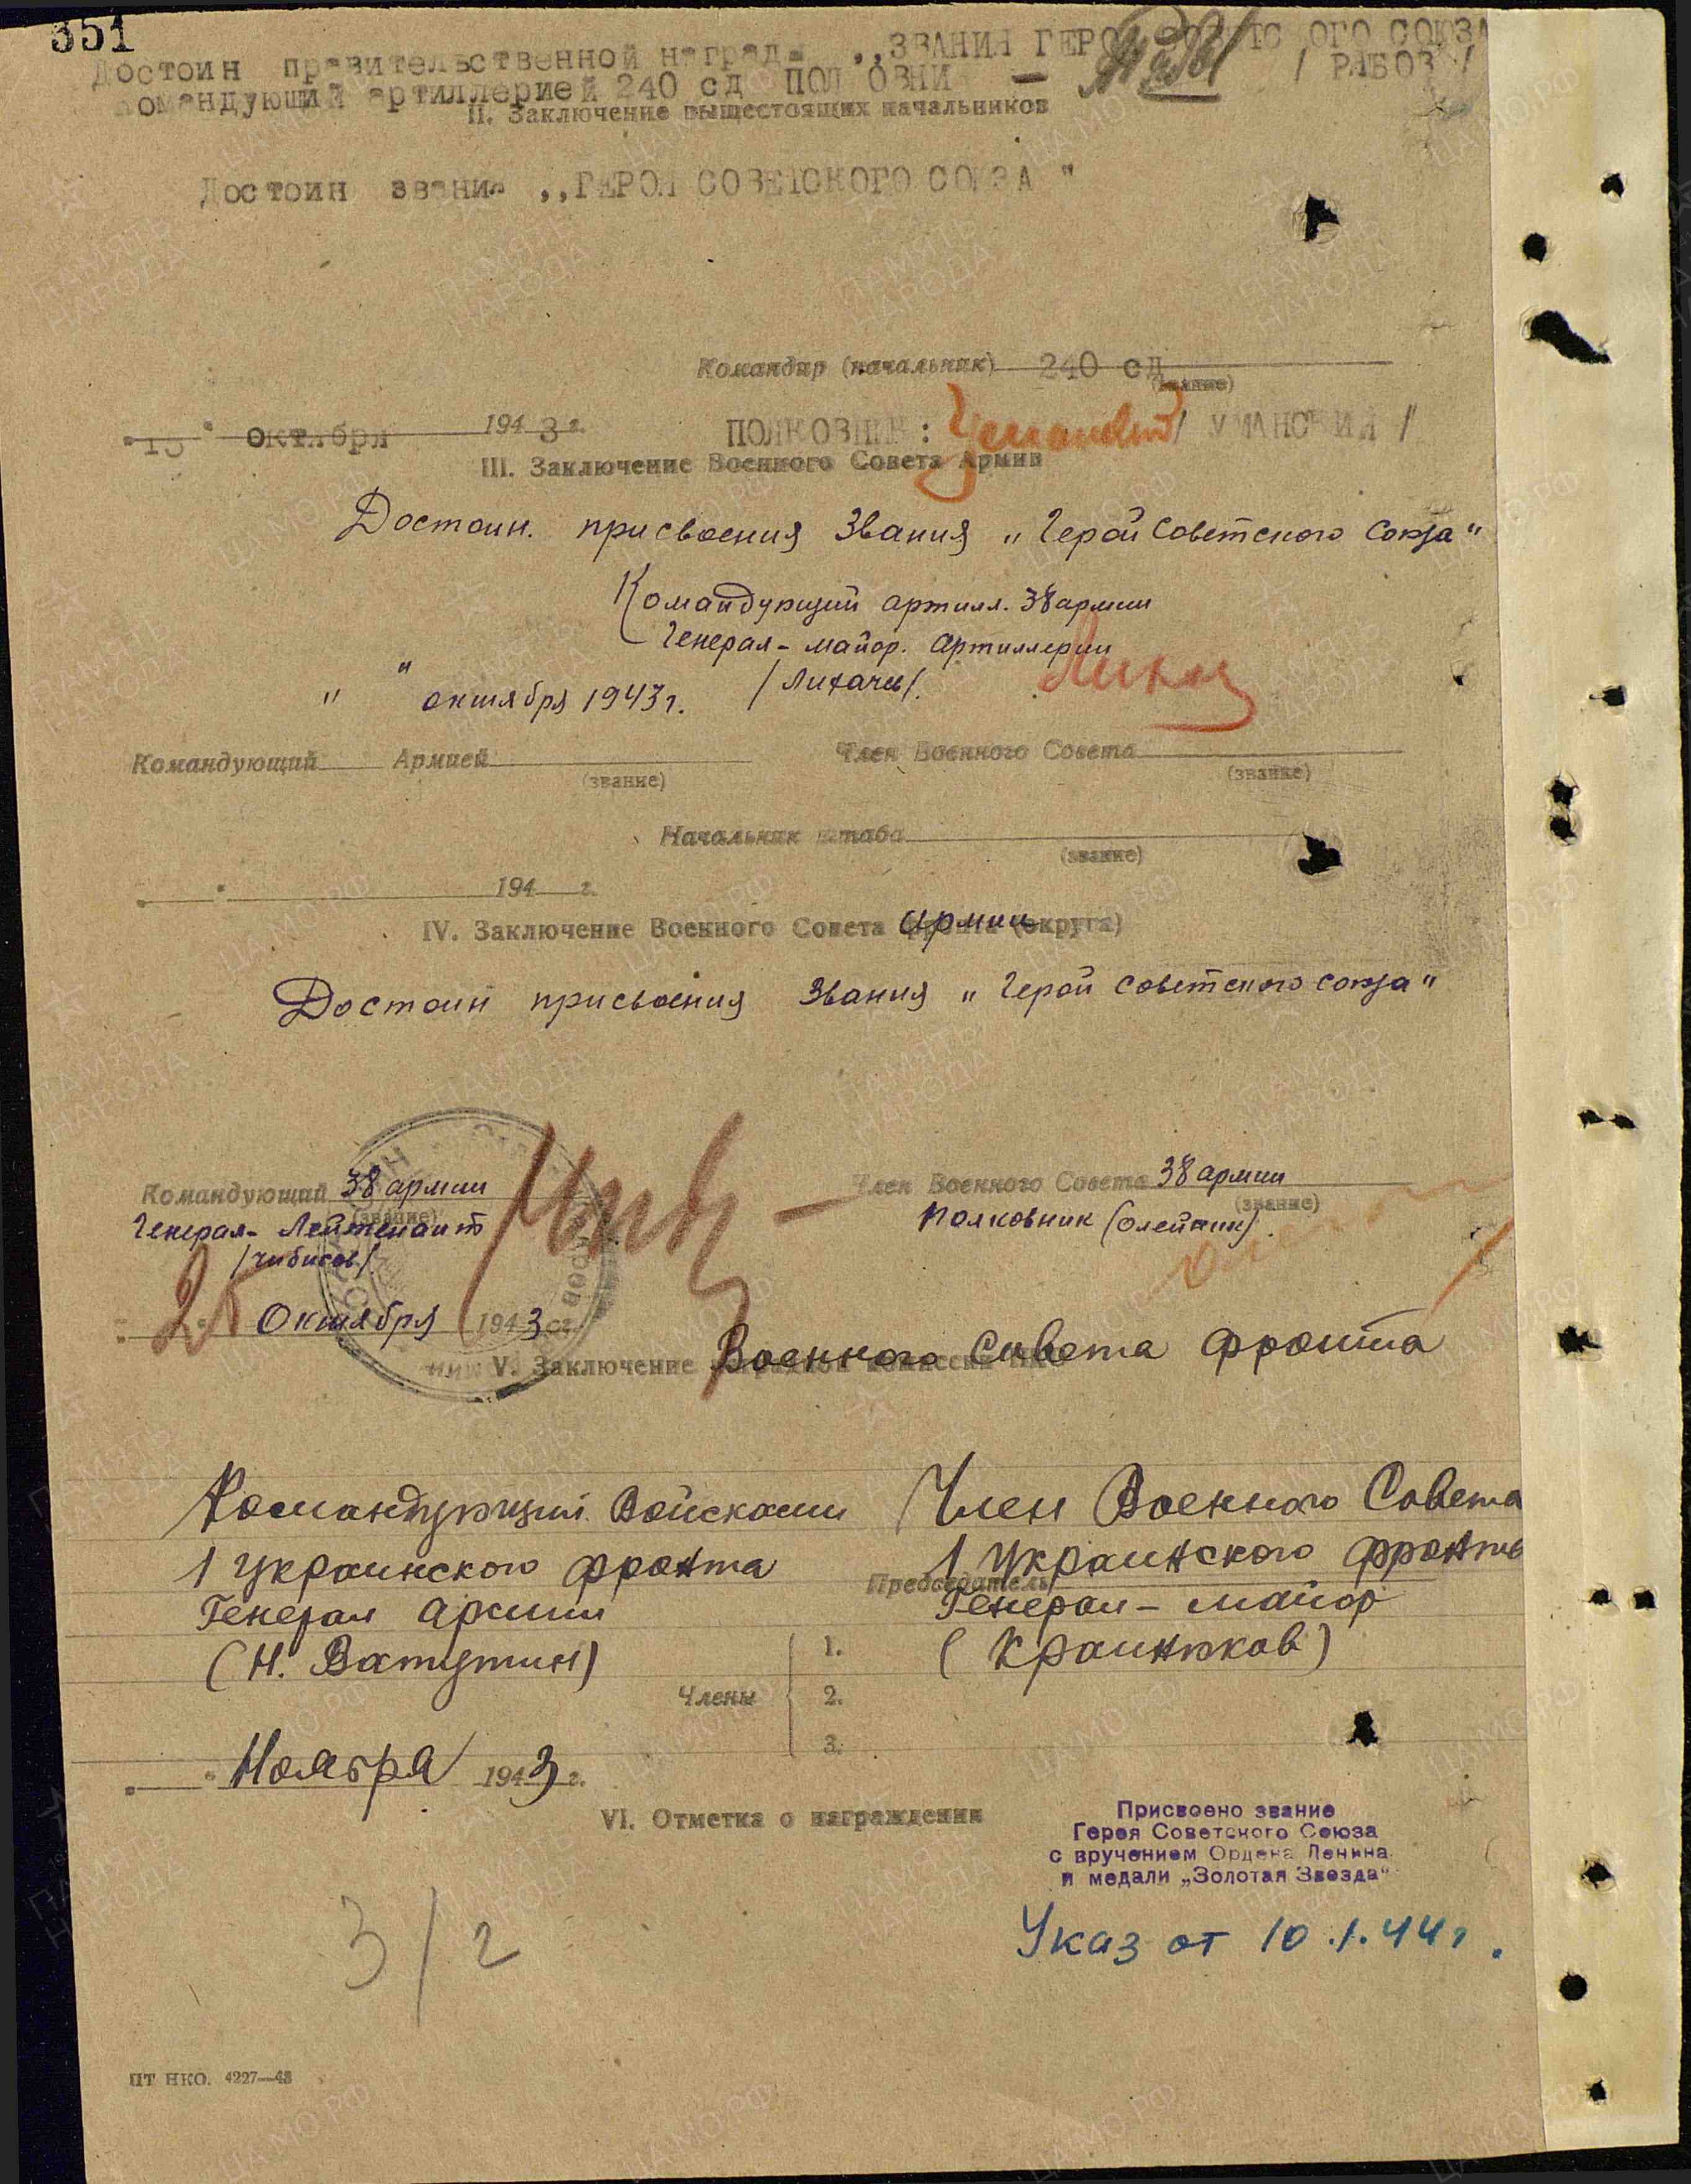 351
Достоин правительственной награды ,,ЗВАНИЯ ГЕРОЯ СОВЕТСКОГО СОЮЗА
Командующий артиллерией 240 сд ПОЛКОВНИК — / РАБОЗ /
II. Заключение вышестоящих начальников
Достоин звания ,,ГЕРОЯ СОВЕТСКОГО СОЮЗА "
Командир (начальник) 240 сд
(звание)
" 15 " октября 1943 г. ПОЛКОВНИК: Уманский / УМАНСКИЙ /
III. Заключение Военного Совета Армии
Достоин. присвоения Звания „Герой Советского Союза"
Командующий артилл. 38 армии
Генерал-майор. артиллерии
/Лихачев/.
" " октября 1943 г.
Командующий Армией
(звание)
Член Военного Совета
(звание)
Начальник штаба
(звание)
" " 194 г.
IV. Заключение Военного Совета армии фронта (округа)
Достоин присвоения Звания „Герой Советского Союза"
Командующий 38 армии
(звание)
Генерал-Лейтенант
/Чибисов/
Член Военного Совета 38 армии
(звание)
Полковник (Олейник).
25 Октября 1943 г.
V. Заключение Военного Совета фронта
Командующий Войсками
1 Украинского фронта
Генерал Армии
(Н. Ватутин)
Член Военного Совета
1 Украинского фронта
Председатель
Генерал-майор
(Крайнюков)
Члены
1.
2.
3.
" " Ноября 1943 г.
VI. Отметка о награждении
Присвоено звание
Героя Советского Союза
с вручением Ордена Ленина
и медали „Золотая Звезда"
Указ от 10.1.44 г.
3/2
ПТ НКО. 4227—43
ПАМЯТЬ НАРОДА
ЦА МО РФ